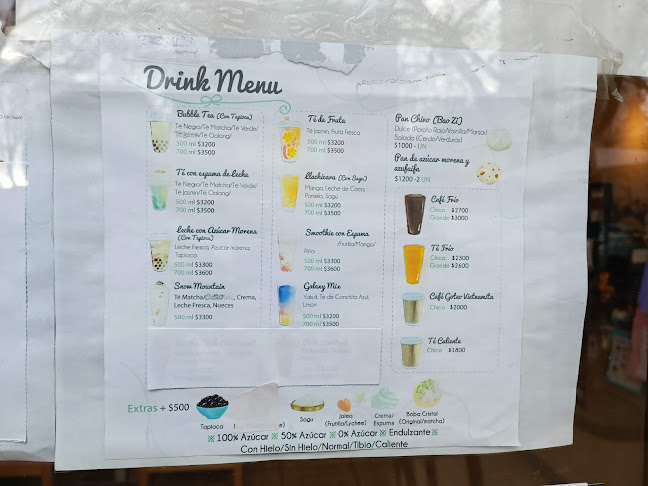 Drink Menu
Bubble Tea (Con Tapioca)
Té Negro/Té Matcha/Té Verde/
Té Jazmin/Té Oolong/
500 ml $3200
700 ml $3500
Té con espuma de Leche
Té Negro/Té Matcha/Té Verde/
Té Jazmin/Té Oolong/
500 ml $3200
700 ml $3500
Leche con Azúcar Morena
(Con Tapioca)
Leche Fresca, Azúcar morena,
Tapioca
500 ml $3300
700 ml $3600
Snow Mountain
Té Matcha/ , Crema,
Leche Fresca, Nueces
500 ml $3300
Té de Fruta
Té Jazmin, Fruta Fresca
500 ml $3200
700 ml $3500
Llachicera (Con Sagu)
Mango, Leche de Coco,
Pomelo, Sagú
500 ml $3200
700 ml $3500
Smoothie con Espuma
/Frutilla/Mango/
Piña
500 ml $3300
700 ml $3600
Galaxy Mix
Yakult, Te de Conchita Azul,
Limón
500 ml $3200
700 ml $3500
Pan Chino (Bao Zi)
Dulce (Poroto Rojo/Vainilla/Mania)
Salado (Cerdo/Verduras)
$1000 - UN
Pan de azúcar morena y
azufaifa
$1200 -2 UN
Café Frío
Chico $2700
Grande $3000
Té Frío
Chico $2300
Grande $2600
Café Goteo Vietnamita
Chico $2000
Té Caliente
Chico $1800
Extras + $500
Tapioca
Sagu
Jalea
(Frutilla/Lychee)
Crema/
Espuma
Boba Cristal
(Original/matcha)
※ 100% Azúcar ※ 50% Azúcar ※ 0% Azúcar ※ Endulzante ※
Con Hielo/Sin Hielo/Normal/Tibio/Caliente